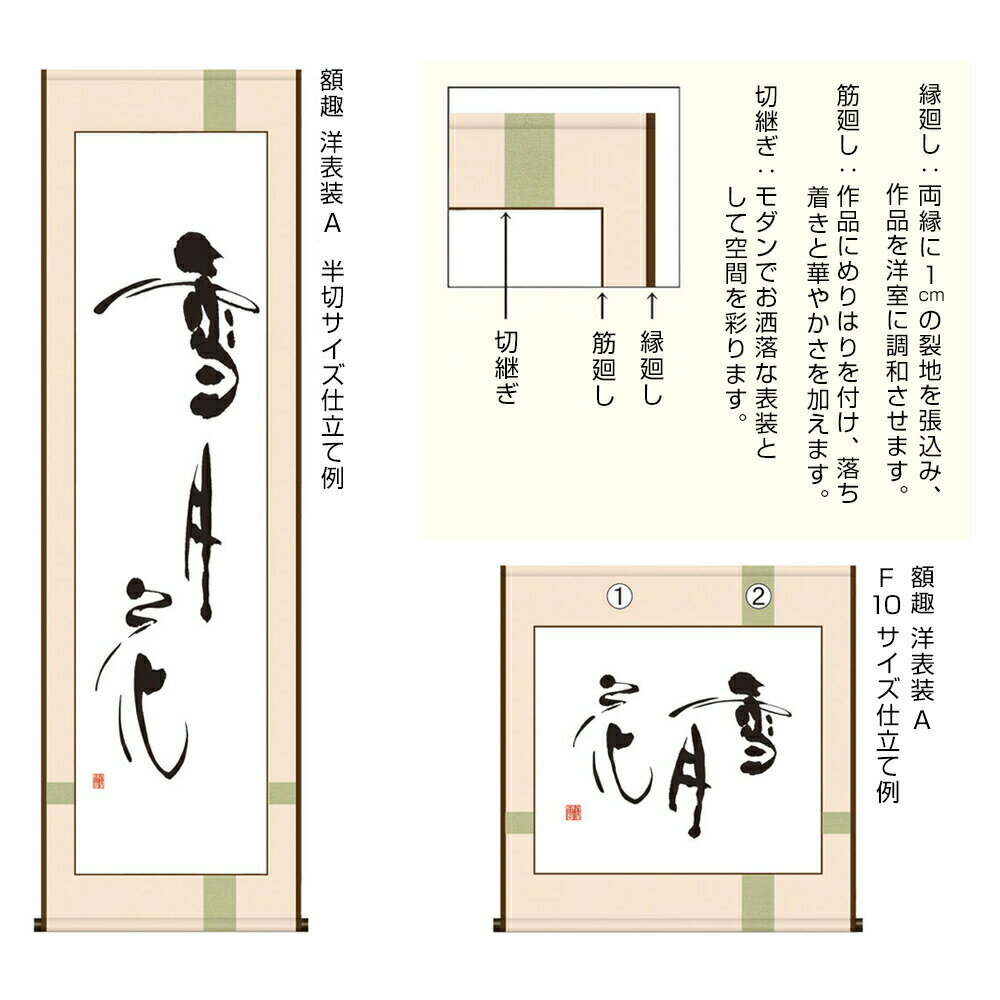 額趣 洋表装A 半切サイズ仕立て例
雪月花
縁廻し：両縁に1cmの裂地を張込み、
作品を洋室に調和させます。
筋廻し：作品にめりはりを付け、落ち
着きと華やかさを加えます。
切継ぎ：モダンでお洒落な表装と
して空間を彩ります。
切継ぎ
筋廻し
縁廻し
額趣 洋表装A
F10サイズ仕立て例
①
②
雪月花